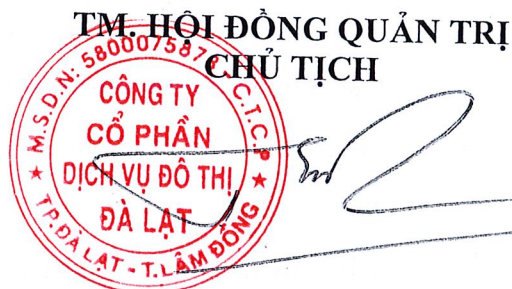 TM. HỘI ĐỒNG QUẢN TRỊ
CHỦ TỊCH
M.S.D.N: 5800075878 - C.T.C.P
CÔNG TY
CỔ PHẦN
DỊCH VỤ ĐÔ THỊ
ĐÀ LẠT
TP.ĐÀ LẠT - T.LÂM ĐỒNG